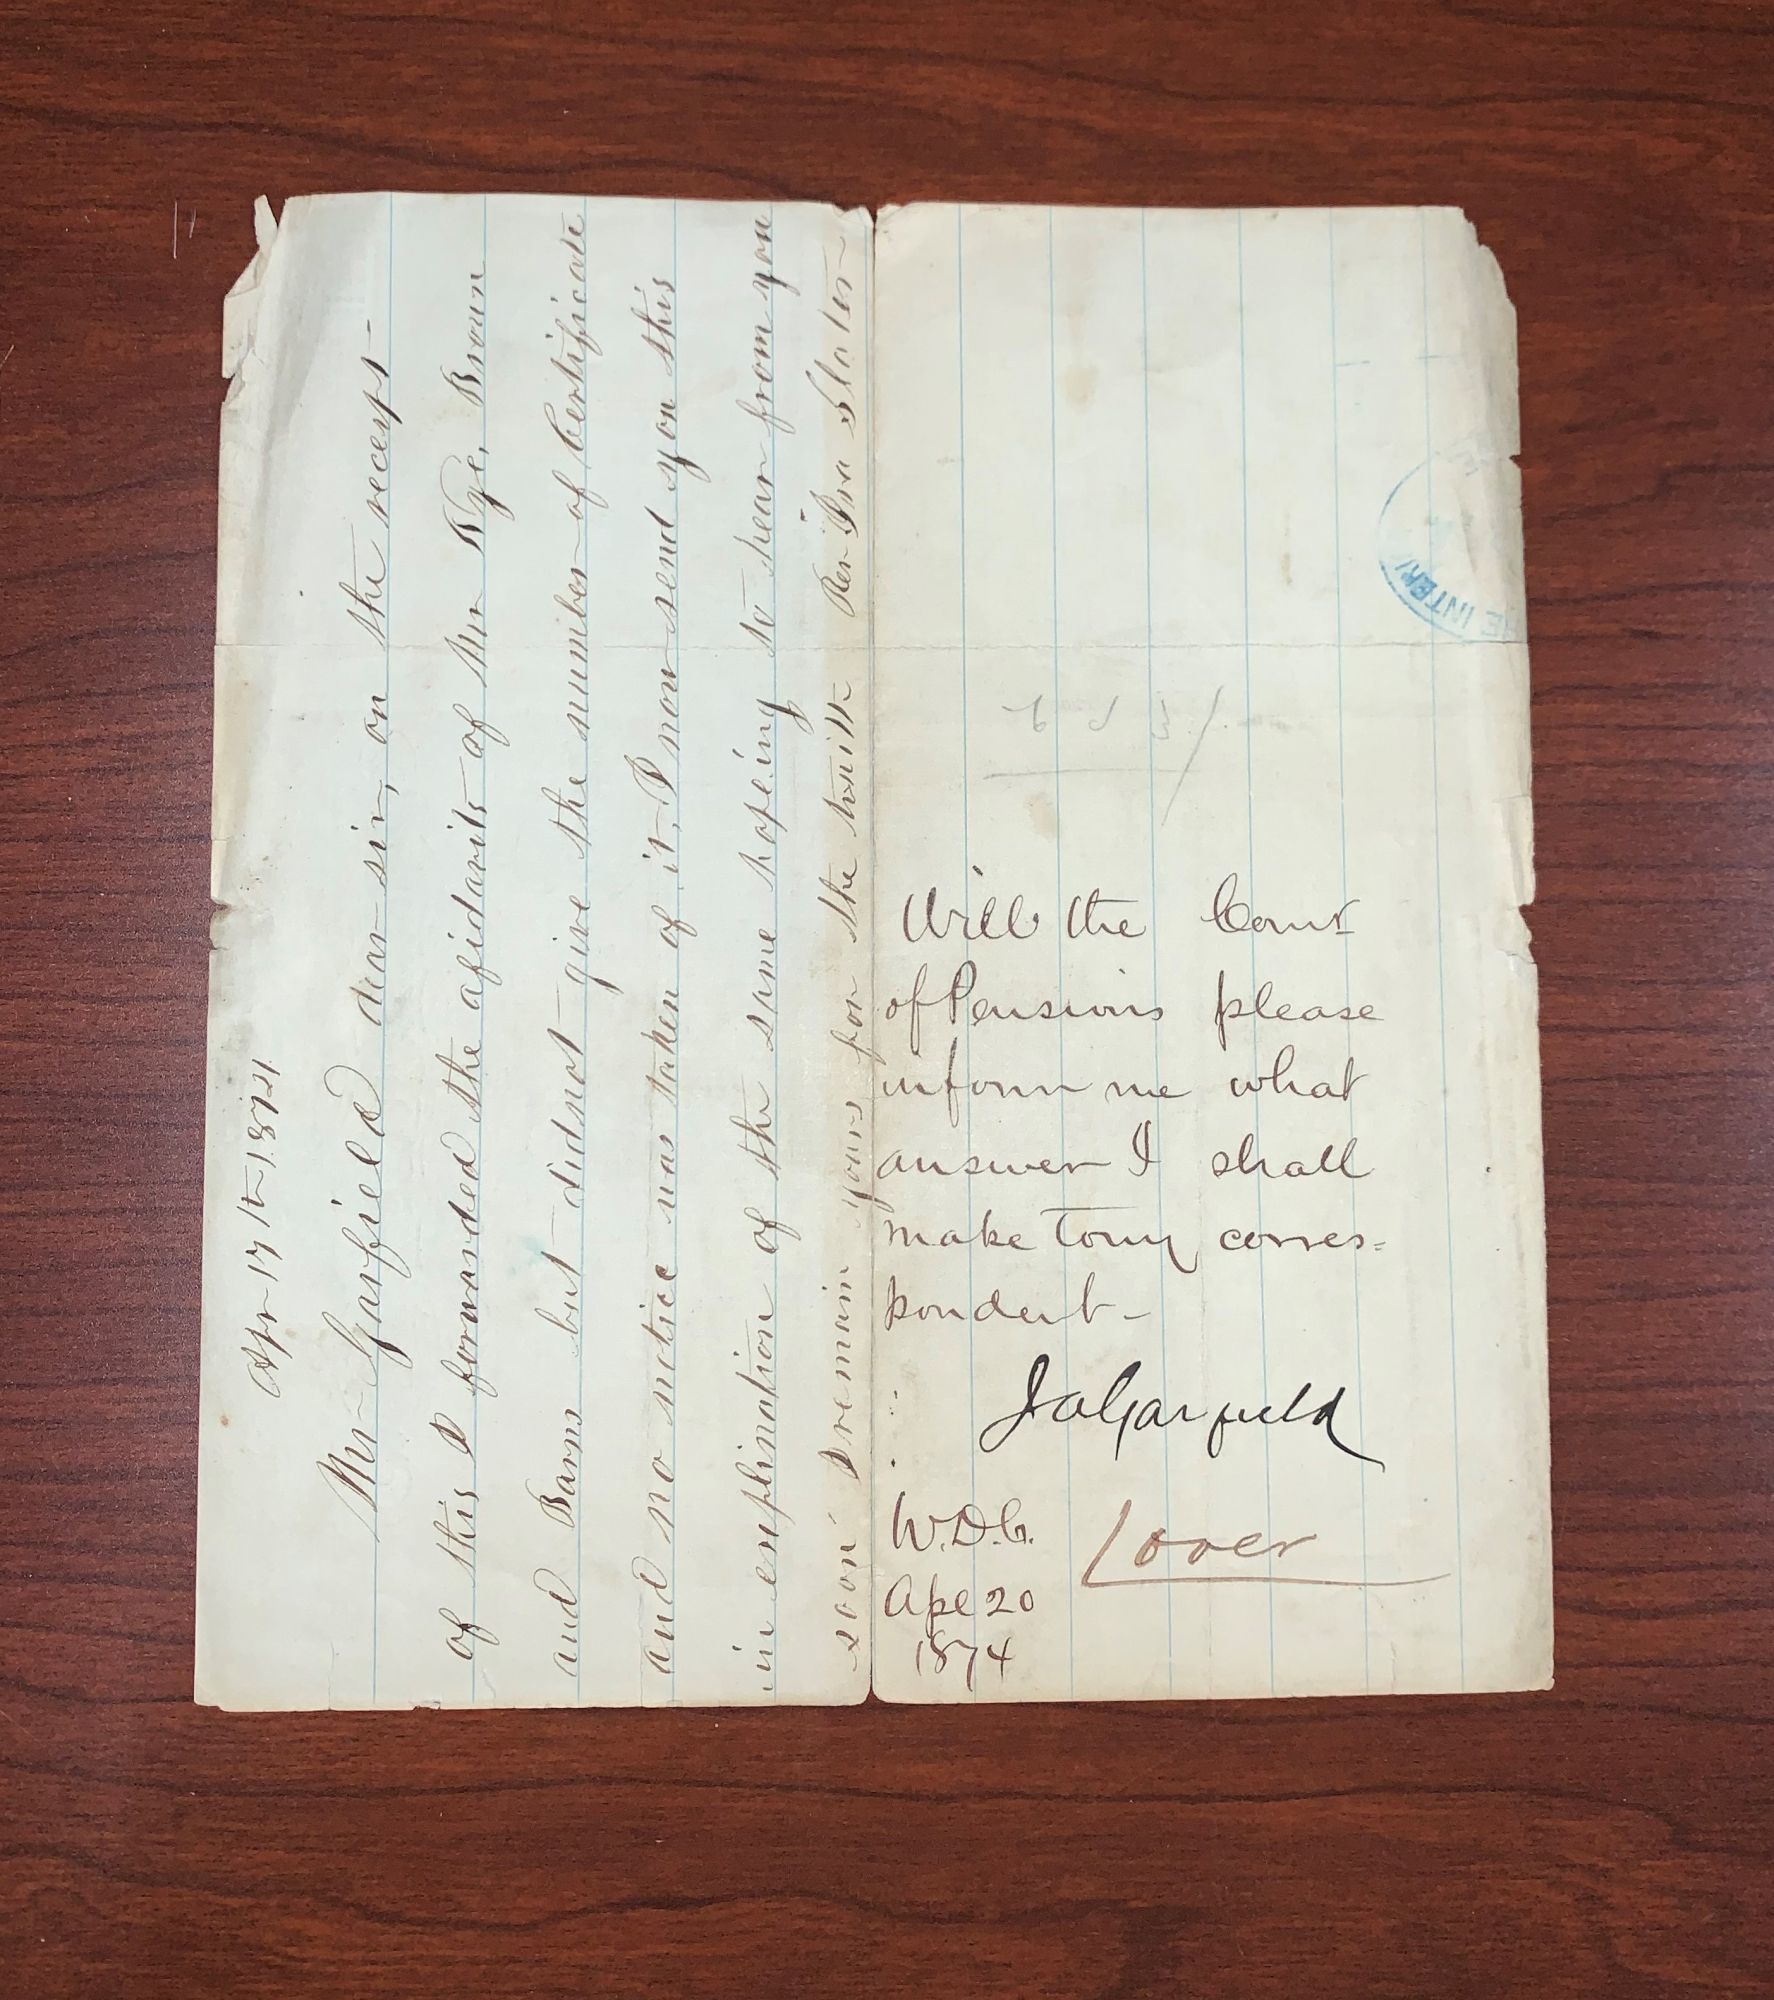 Apr 17th 1874
Mr Garfield dear sir, on the recept
of this I forwarded the afidavits of Mr Nye, Brown
and Barns but didnot give the number of Certificate
and no notice was taken of it, I now send you this
in explination of the same hopeing to hear from you
soon I remain yours for the truth Rev Ira Slater
Will the Comr
of Pensions please
inform me what
answer I shall
make to my corres=
pondent-
J a Garfield
W.D.C. over
Apl 20
1874
E INTERI